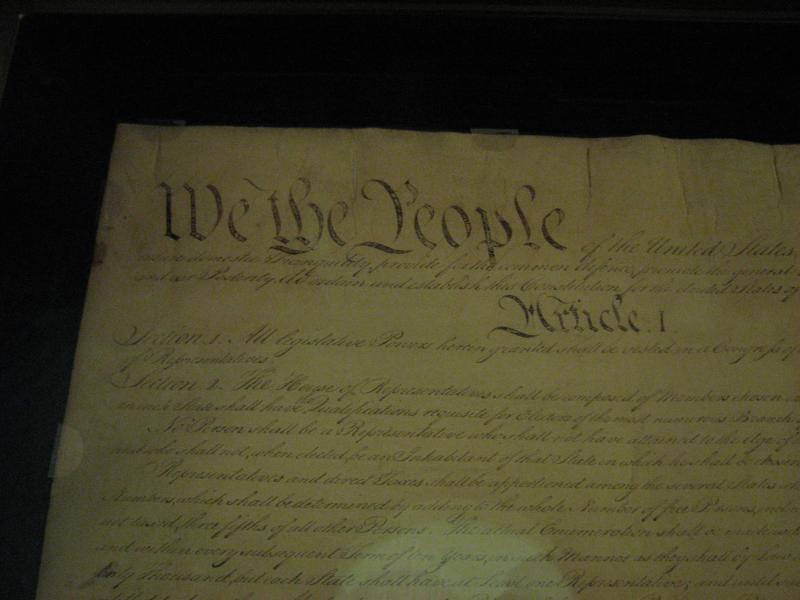 We the People of the United States,
insure domestic Tranquility, provide for the common defence, promote the general
and our Posterity, do ordain and establish this Constitution for the United States of
Article. I.
Section. 1. All legislative Powers herein granted shall be vested in a Congress of
of Representatives.
Section. 2. The House of Representatives shall be composed of Members chosen
in each State shall have Qualifications requisite for Electors of the most numerous Branch
No Person shall be a Representative who shall not have attained to the Age of
and who shall not, when elected, be an Inhabitant of that State in which he shall be chosen
Representatives and direct Taxes shall be apportioned among the several States
Numbers, which shall be determined by adding to the whole Number of free Persons,
not taxed, three fifths of all other Persons. The actual Enumeration shall be made
and within every subsequent Term of ten Years, in such Manner as they shall by Law
thirty Thousand, but each State shall have at Least one Representative; and until